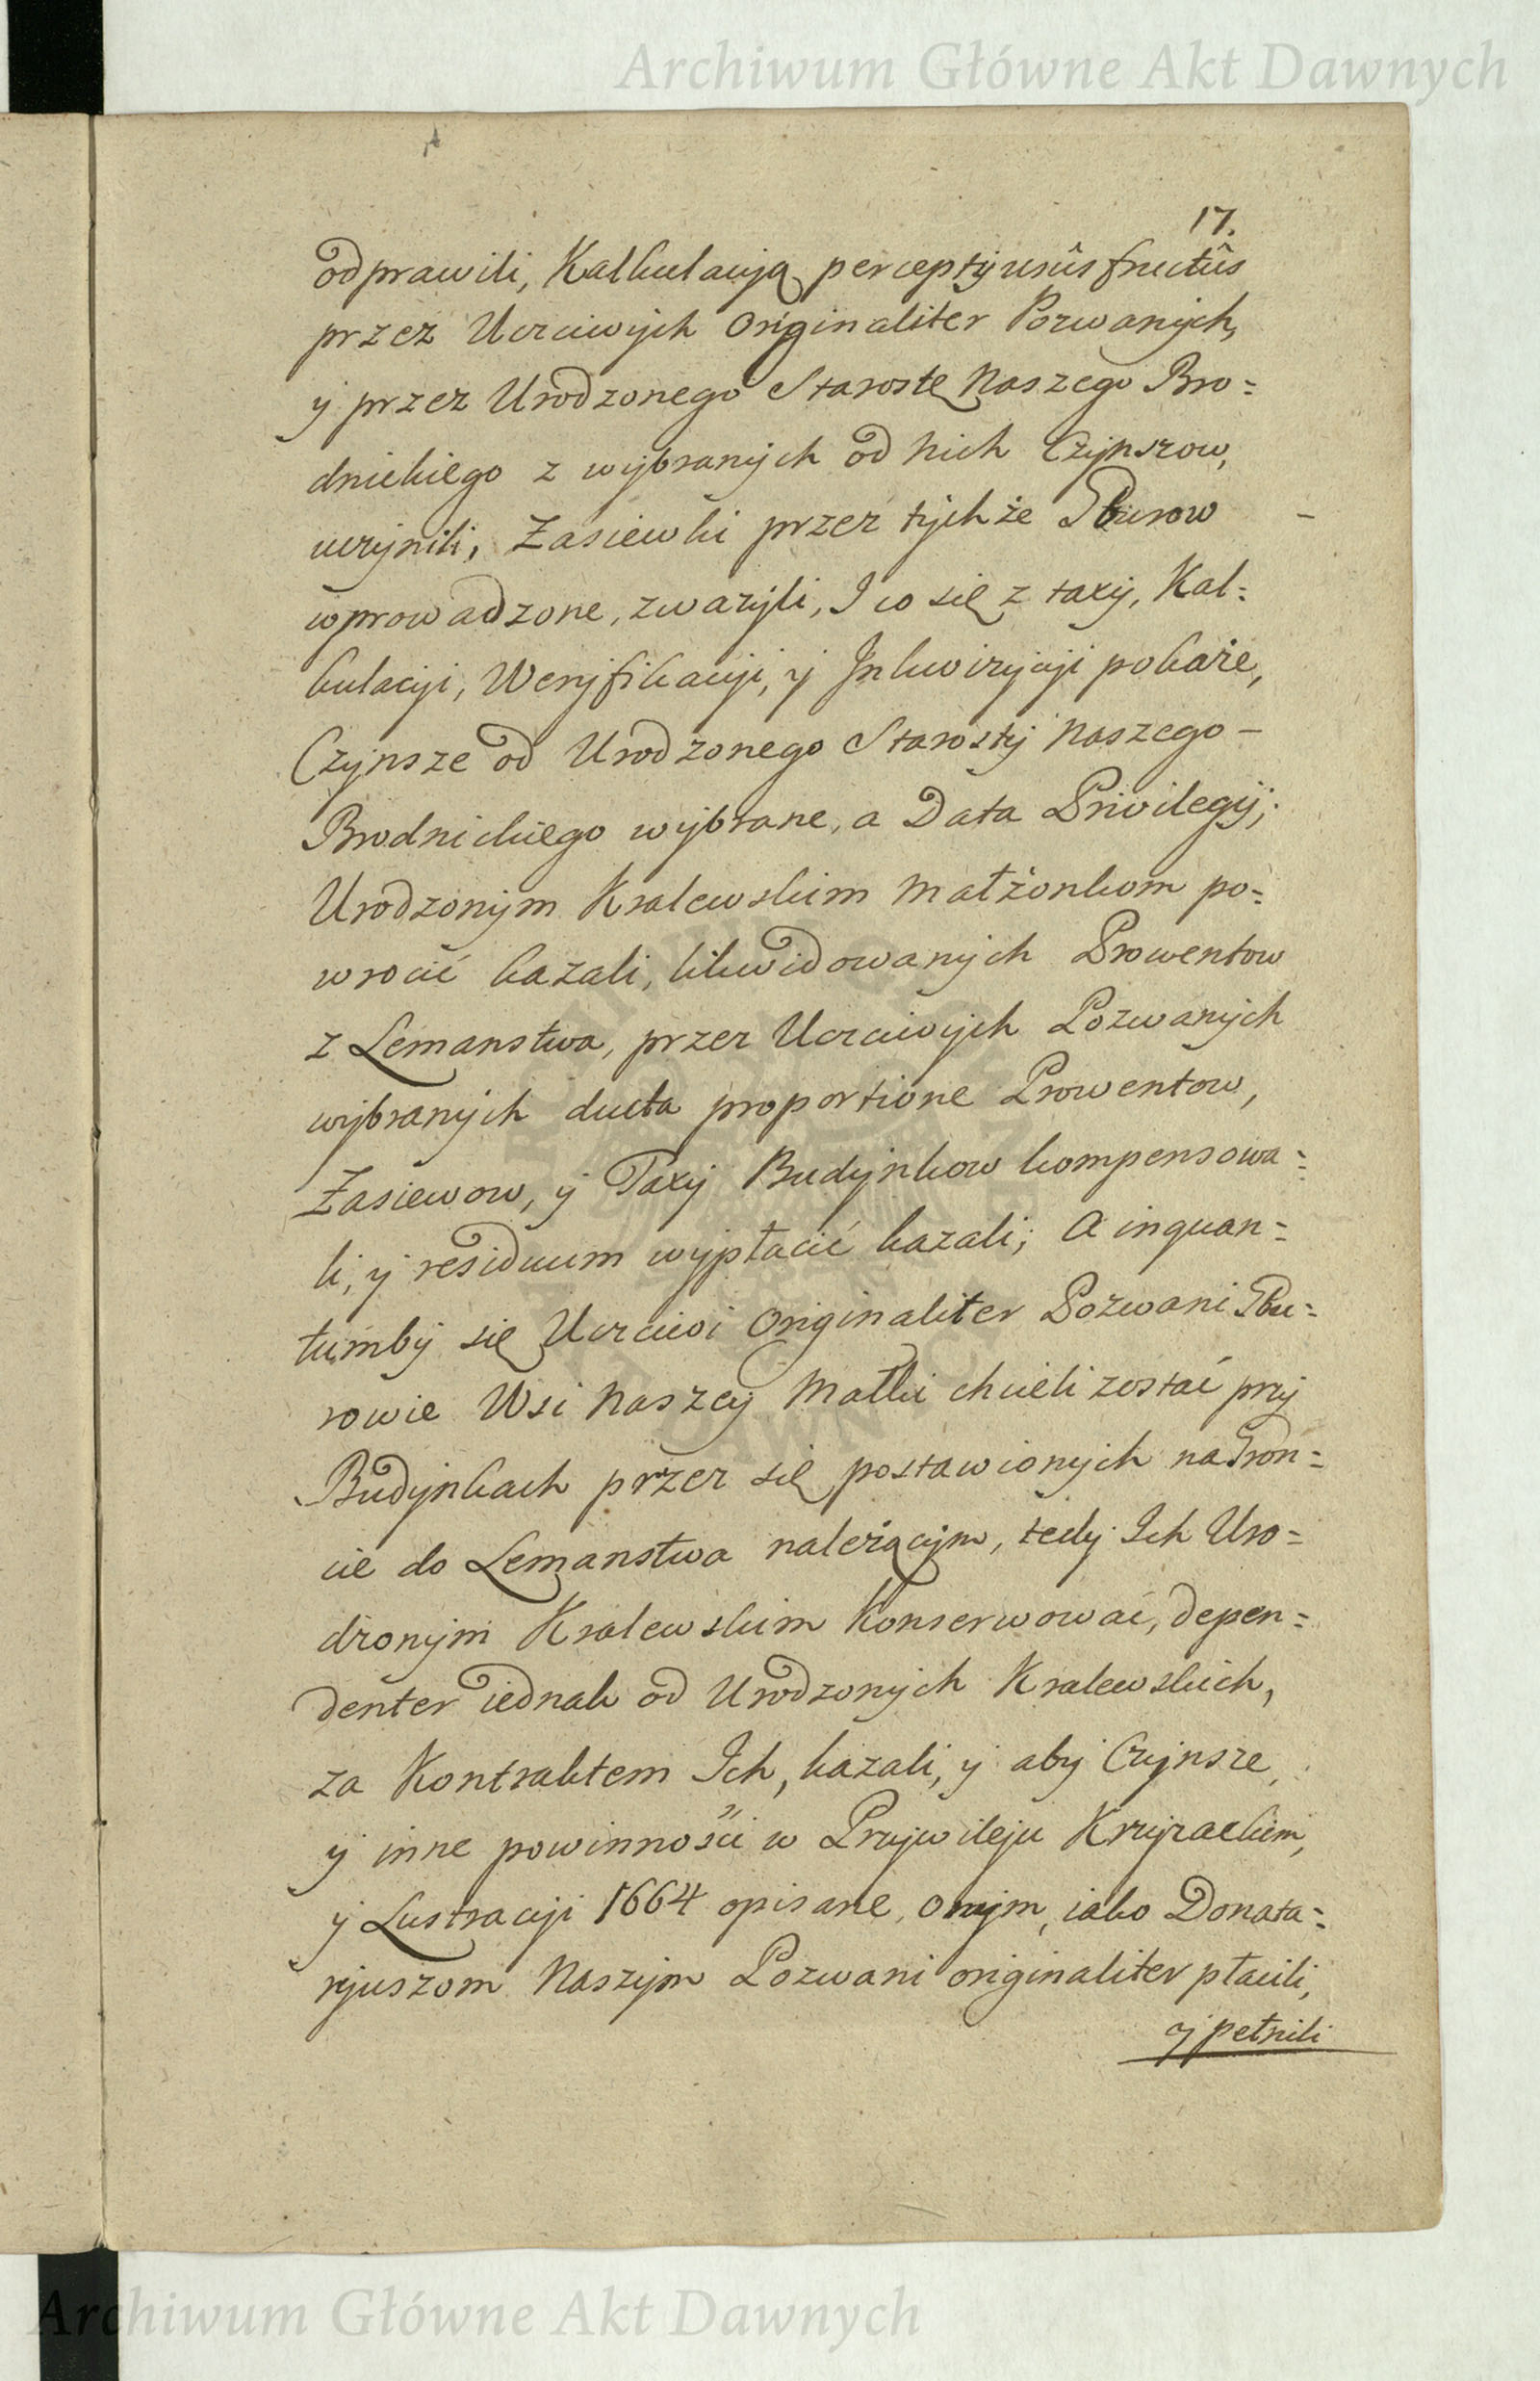 Archiwum Główne Akt Dawnych
17.
odprawili, Kalkulacyją percepty usûsfructûs
przez Uczciwych Originaliter Pozwanych,
y przez Urodzonego Starostę Naszego Bro=
dnickiego z wybranych od Nich Czynszow,
uczynili, Zasiewki przez tychże Gburow –
wprowadzone, zważyli, I co się z taxy, Kal=
kulacyi, Weryfikacyi, y Inkwizycyi pokaże,
Czynsze od Urodzonego Starosty Naszego –
Brodnickiego wybrane, a Data Privilegij;
Urodzonym Kralewskim Małżonkom po=
wrocić kazali, likwidowanych Prowentow
z Lemanstwa, przez Uczciwych Pozwanych
wybranych ducta proportione Prowentow,
Zasiewow, y Taxy Budynkow kompensowa=
li, y residuum wypłacić kazali; A inquan=
tumby się Uczciwi Originaliter Pozwani Gbu=
rowie Wsi Naszey Małki chcieli zostać przy
Budynkach przez się postawionych na Gron=
cie do Lemanstwa należącym, tedy Ich Uro=
dzonym Kralewskim Konserwować, depen=
denter iednak od Urodzonych Kralewskich,
za Kontraktem Ich, kazali, y aby Czynsze,
y inne powinności w Przywileju Krzyżackim,
y Lustracyi 1664 opisane, onym, iako Donata=
ryuszom Naszym Pozwani originaliter płacili,
y pełnili
Archiwum Główne Akt Dawnych